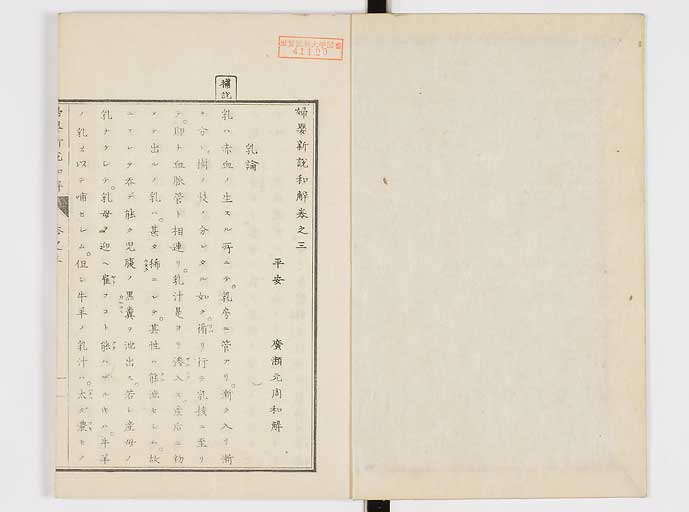 補説
婦嬰新説和解巻之三
平安 廣瀬元周和解
乳論
乳ハ赤血ノ生スル所ニテ。乳房ニ管アリ。漸ク入リ漸
ク分レ。樹ノ枝ノ分レタル如ク。循リ行テ乳核ニ至リ
テ。即チ血脈管ト相連リ。乳汁是ヨリ湊入ス。産后ニ初
メテ出ルノ乳ハ。甚タ稀ニシテ。其性ハ能泄セシム。故
ニコレヲ呑テ能ク児腹ノ黒糞ヲ泄出ス。若シ産母ノ
乳ナクシテ。乳母ヲ迎ヘ雇フコト能ハザルキハ。牛羊
ノ乳ヲ以テ哺セシム。但シ牛羊ノ乳汁ハ。太ダ濃セノ
41120